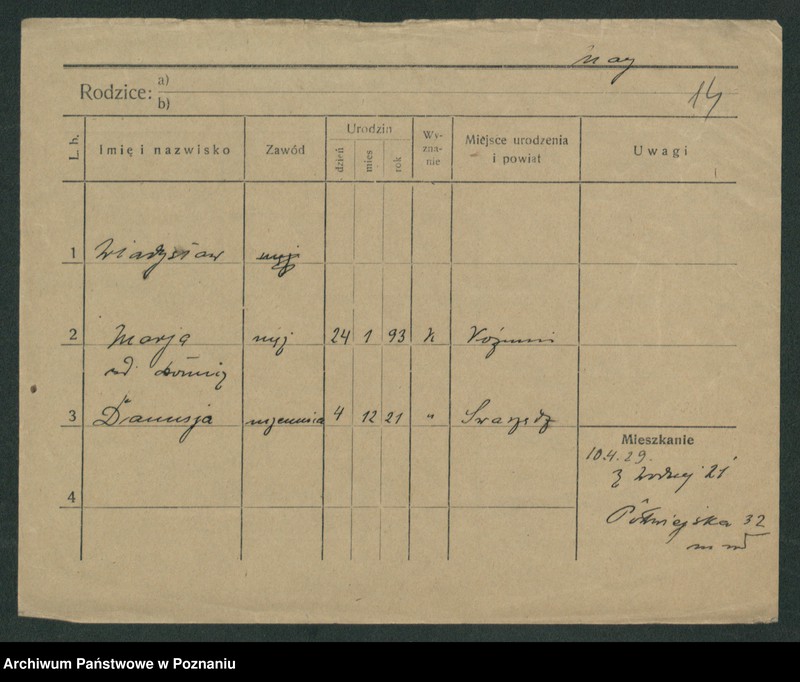 Rodzice: a)
b)
14
L. b. Imię i nazwisko Zawód Urodzin dzień mies rok Wy-zna-nie Miejsce urodzenia i powiat Uwagi
1 Władysław
2 Marja 24 1 93
3 Danusja uczennica 4 12 21 " Swarzędz
4
Mieszkanie
10.4.29.
21
Półwiejska 32
Archiwum Państwowe w Poznaniu